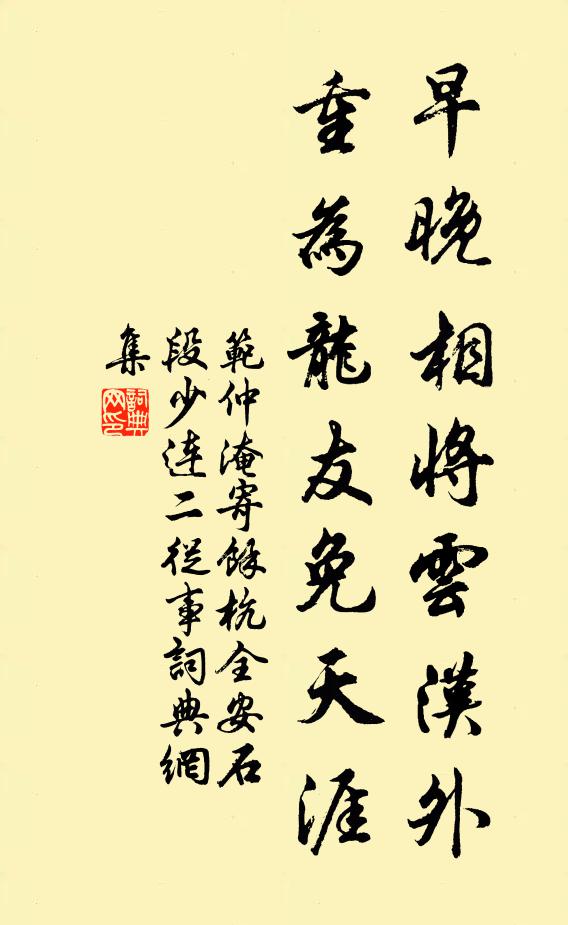 早晚相將雲漢外
重為龍友免天涯
範仲淹寄餘杭全安石
段少连二從事詞典網
集
詞典
网印